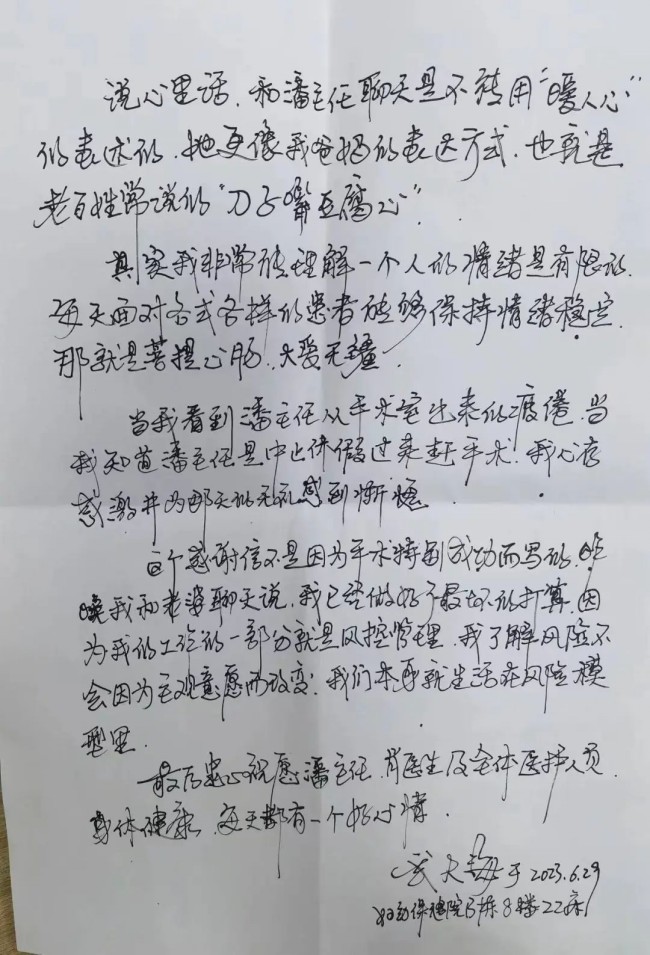 说心里话，和潘主任聊天是不能用“暖人心”
的表述的，她更像我爸妈的表达方式，也就是
老百姓常说的“刀子嘴豆腐心”。
其实我非常能理解一个人的情绪是有限的，
每天面对各式各样的患者能够保持情绪稳定，
那就是菩提心肠，大爱无疆。
当我看到潘主任从手术室出来的疲倦，当
我知道潘主任是中止休假过来赶手术，我心存
感激并为那天的无礼感到惭愧。
这个感谢信不是因为手术特别成功而写的，昨
晚我和老婆聊天说，我已经做好了最坏的打算，因
为我的工作的一部分就是风控管理，我了解风险不
会因为主观意愿而改变，我们本身就生活在风险模
型里。
最后衷心祝愿潘主任、肖医生及全体医护人员，
身体健康，每天都有一个好心情。
大 于2023.6.29
妇幼保健院B栋8楼22床